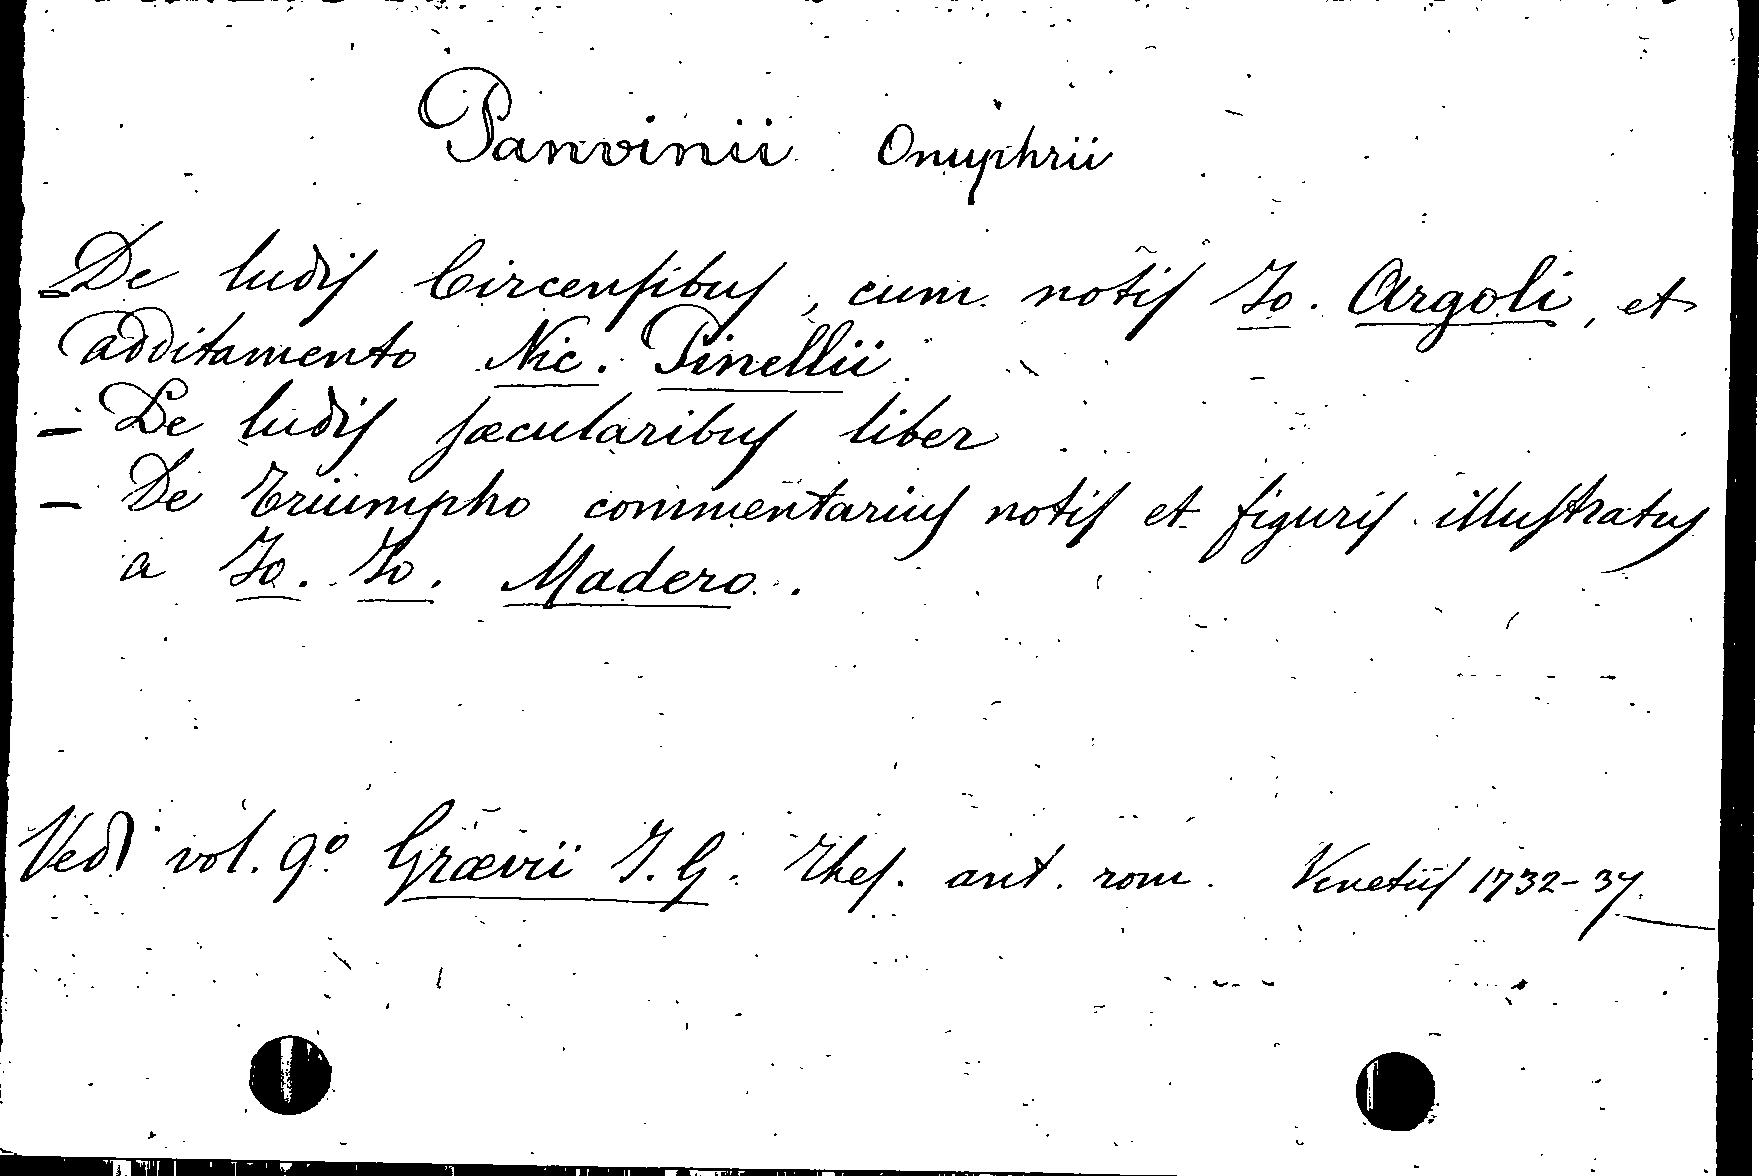 Panvinii Onuphrii
- De ludis Circensibus, cum notis Jo. Argoli, et
additamento Nic. Pinellii
- De ludis sæcularibus liber
- De triumpho commentarius notis et figuris illustratus
a Jo. Jo. Madero.
Vedi vol. 9º Grævii J. G. Thes. ant. rom. Venetiis 1732-37